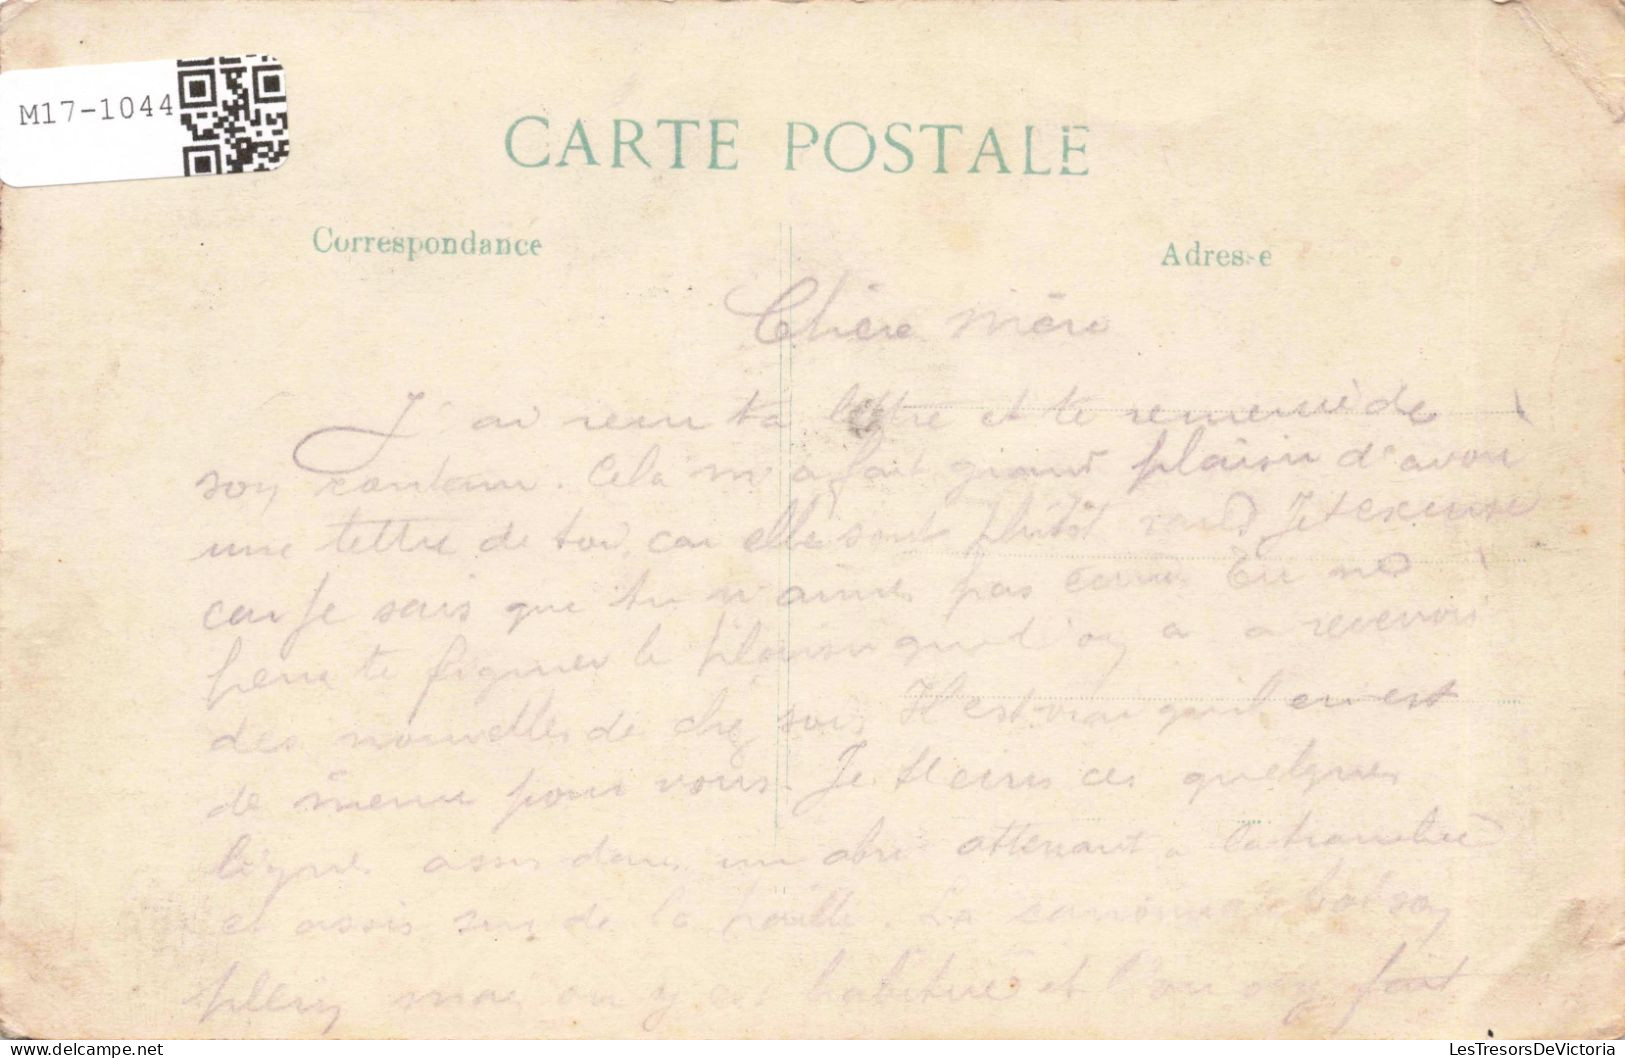 M17-1044
CARTE POSTALE
Correspondance
Adresse
Chère mère
J'ai recu ta lettre et te remercie de
son contenu. Cela m'a fait grand plaisir d'avoir
une lettre de toi, car elle sont plutôt rares Je t'excuse
car je sais que tu n'aimes pas écrire Tu ne
peux te figurer le plaisir que l'on a a recevoir
des nouvelles de chez sois Il est vrai qu'il en est
de même pour vous. Je t'écris ces quelques
lignes assis dans un abri attenant a la tranchée
et assis sur de la paille. La canonnade bat son
plein mais on y est habitué et l'on s'y fait
LesTresorsDeVictoria
www.delcampe.net